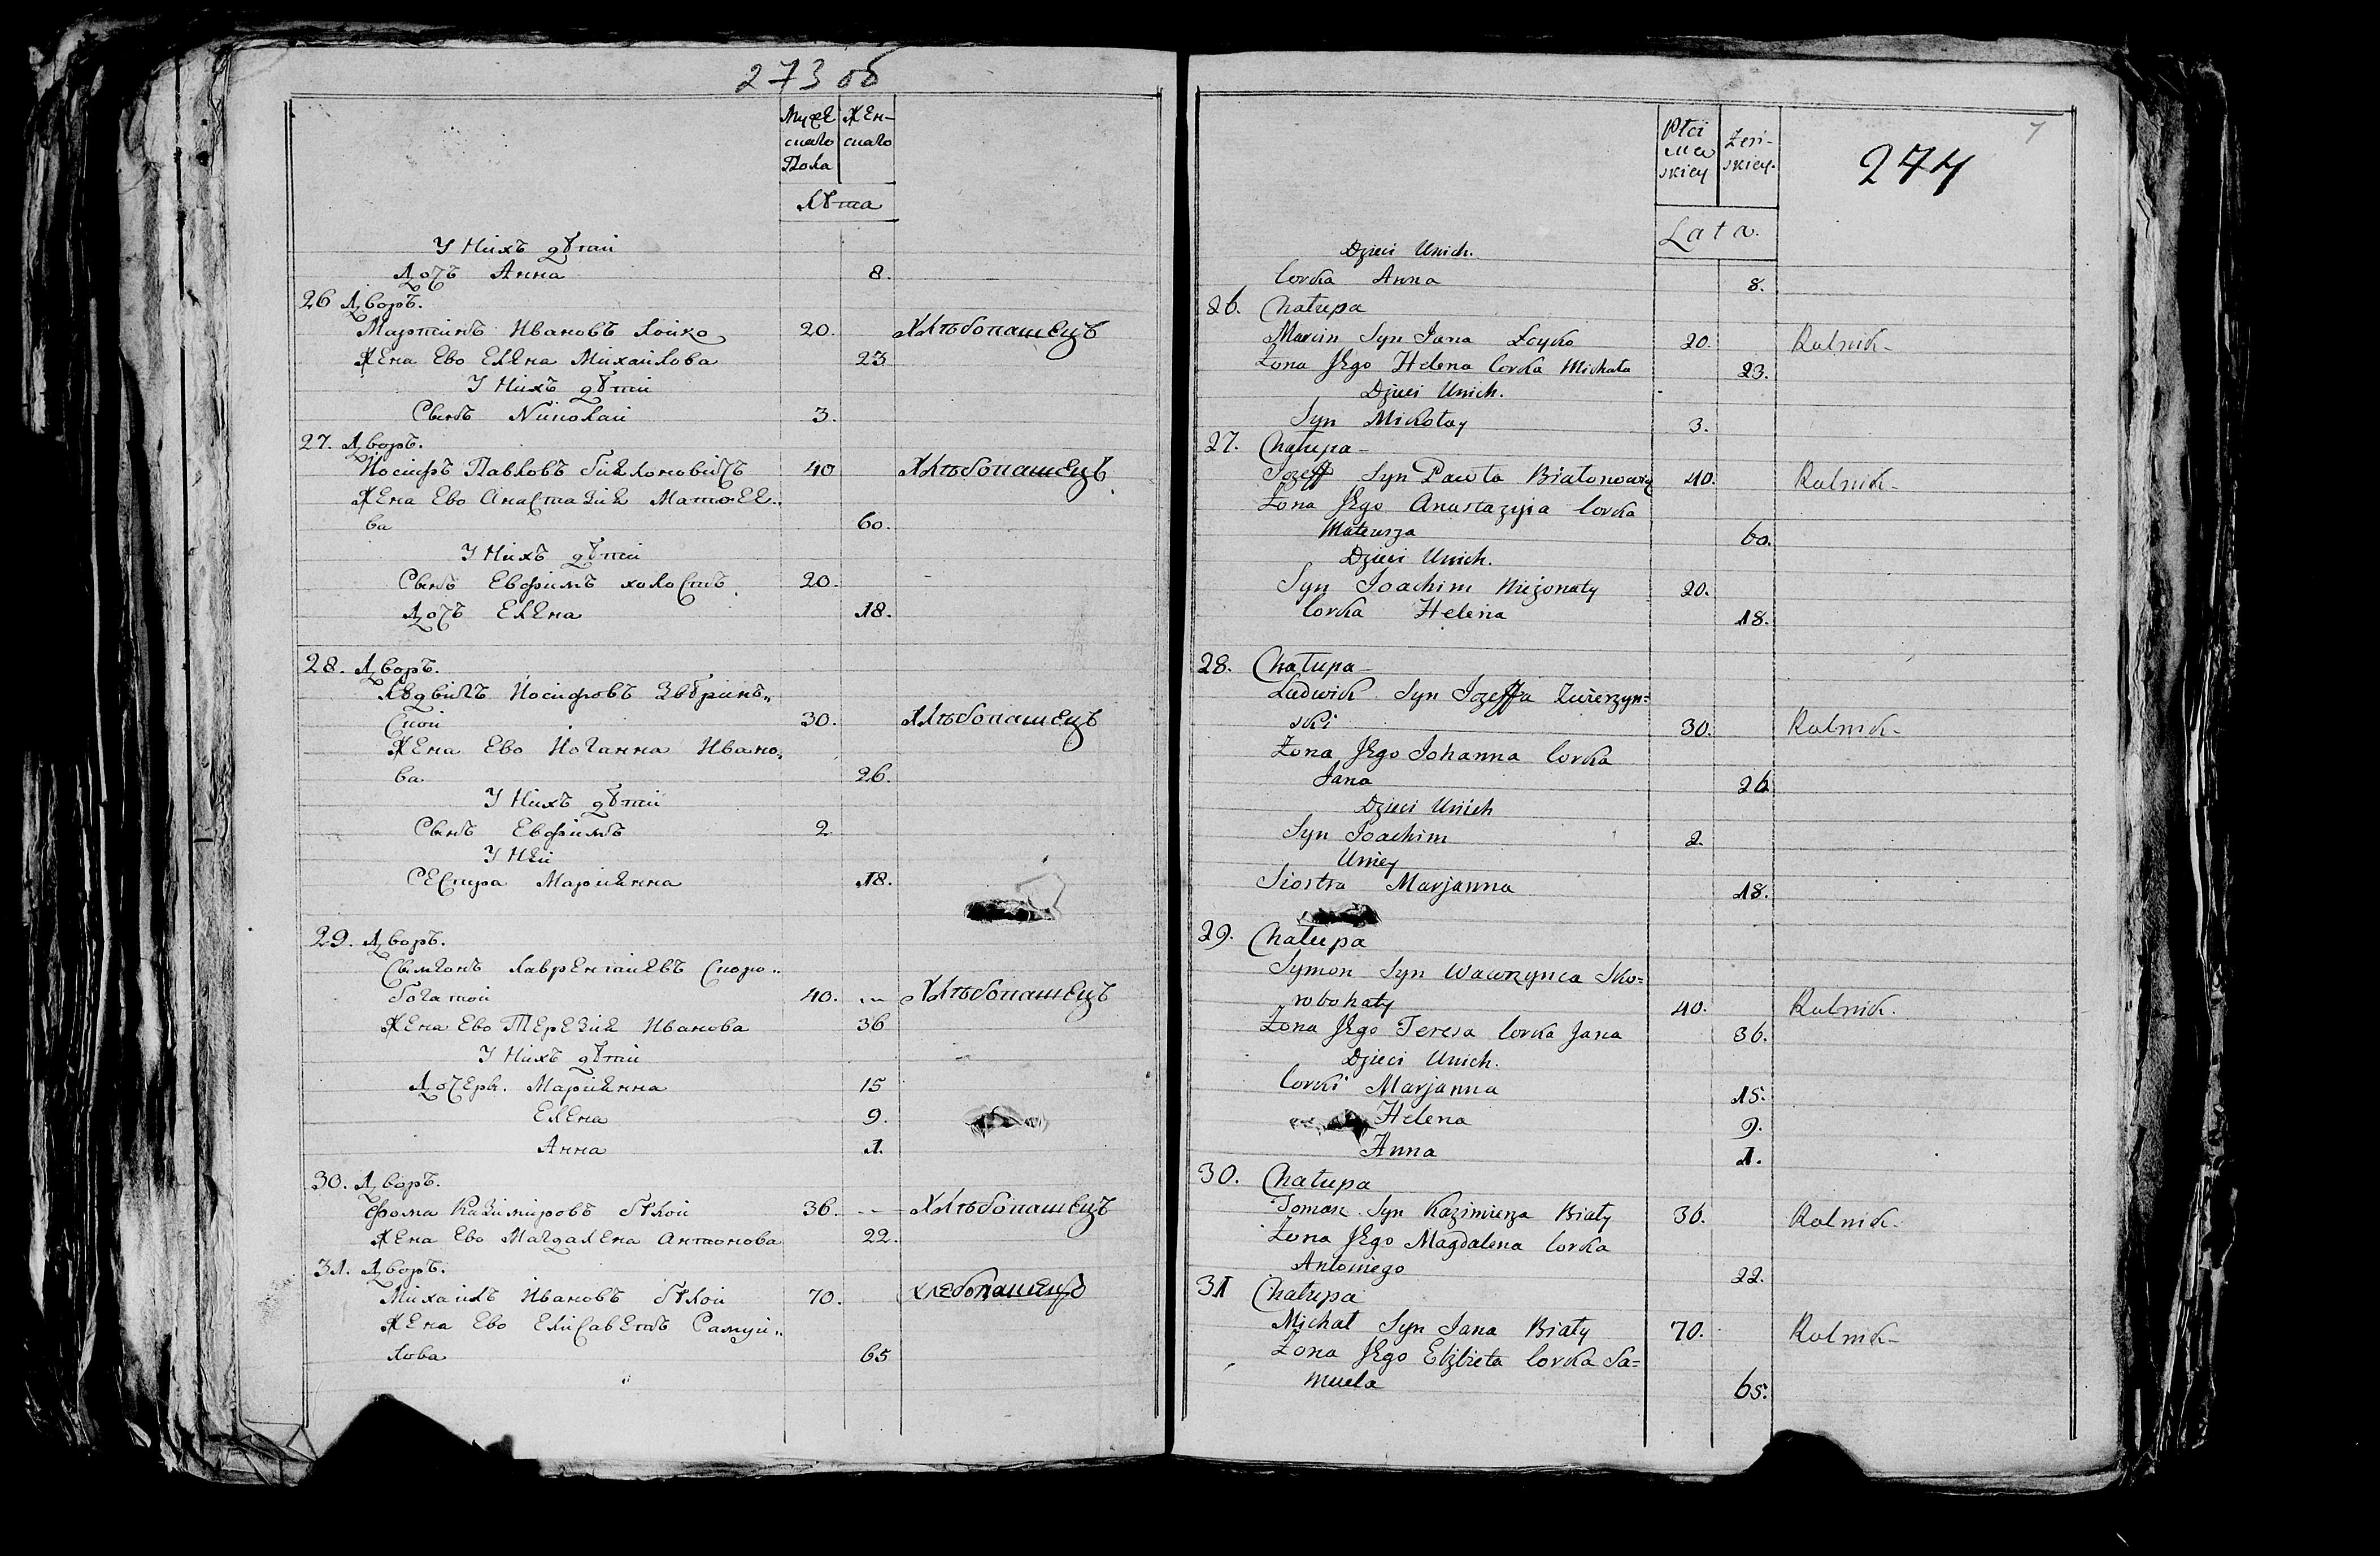 273 об
Мужескаго Пола Женскаго
Лѣта
У нихъ дѣтей
Дочь Анна 8.
26 Дворъ.
Мартинъ Ивановъ Лойко 20. Хлѣбопашецъ
Жена Ево Елена Михайлова 23
У нихъ дѣтей
Сынъ Николай 3.
27. Дворъ.
Иосифъ Павловъ Бялоновичъ 40 Хлѣбопашецъ
Жена Ево Анастазия Матоее„
ва 60.
У нихъ дѣтей
Сынъ Евфимъ холостъ. 20.
Дочь Елена 18.
28. Дворъ.
Людвигъ Иосифовъ Звѣринъ„
ской 30. Хлѣбопашецъ
Жена Ево Иоганна Ивано„
ва 26.
У нихъ дѣтей
Сынъ Евфимъ 2
У ней
Сестра Марианна 18.
29. Дворъ.
Сымонъ Лаврентиевъ Скоро„
богатой 40. Хлѣбопашецъ
Жена Ево Терезия Иванова 36
У нихъ дѣтей
Дочери. Марианна 15
Елена 9.
Анна 1.
30. Дворъ.
Фома Казимировъ Бѣлой 36. Хлѣбопашецъ
Жена Ево Магдалена Антонова 22.
31. Дворъ.
Михаилъ Ивановъ Бѣлой 70. хлебопашецъ
Жена Ево Елисаветъ Самуй„
лова 65
7
274
Płci Męskiey Żeńskiey.
Lata.
Dzieci Unich.
Corka Anna 8.
26. Chałupa
Marcin Syn Jana Łoyko 20. Rolnik-
Żona Jego Helena Corka Michała 23.
Dzieci Unich.
Syn Mikołay 3.
27. Chałupa-
Jozeff Syn Pawła Białonowicz 40. Rolnik-
Żona Jego Anastazyia Corka
Mateusza 60.
Dzieci Unich.
Syn Joachim Nieżonaty 20.
Corka Helena 18.
28. Chałupa-
Ludwik Syn Jozeffa Zwierzyn=
ski 30. Rolnik-
Żona Jego Johanna Corka
Jana 26
Dzieci Unich
Syn Joachim 2.
Uniey
Siostra Marjanna 18.
29. Chałupa
Symon Syn Wawrzynca Sko=
robohaty 40. Rolnik.
Żona Jego Teresa Corka Jana 36.
Dzieci Unich.
Corki Marjanna 15.
Helena 9.
Anna 1.
30. Chałupa
Tomasz Syn Kazimierza Biały 36. Rolnik-
Żona Jego Magdalena Corka
Antoniego 22.
31 Chałupa
Michał Syn Jana Biały 70. Rolnik-
Żona Jego Elżbieta Corka Sa=
muela 65.